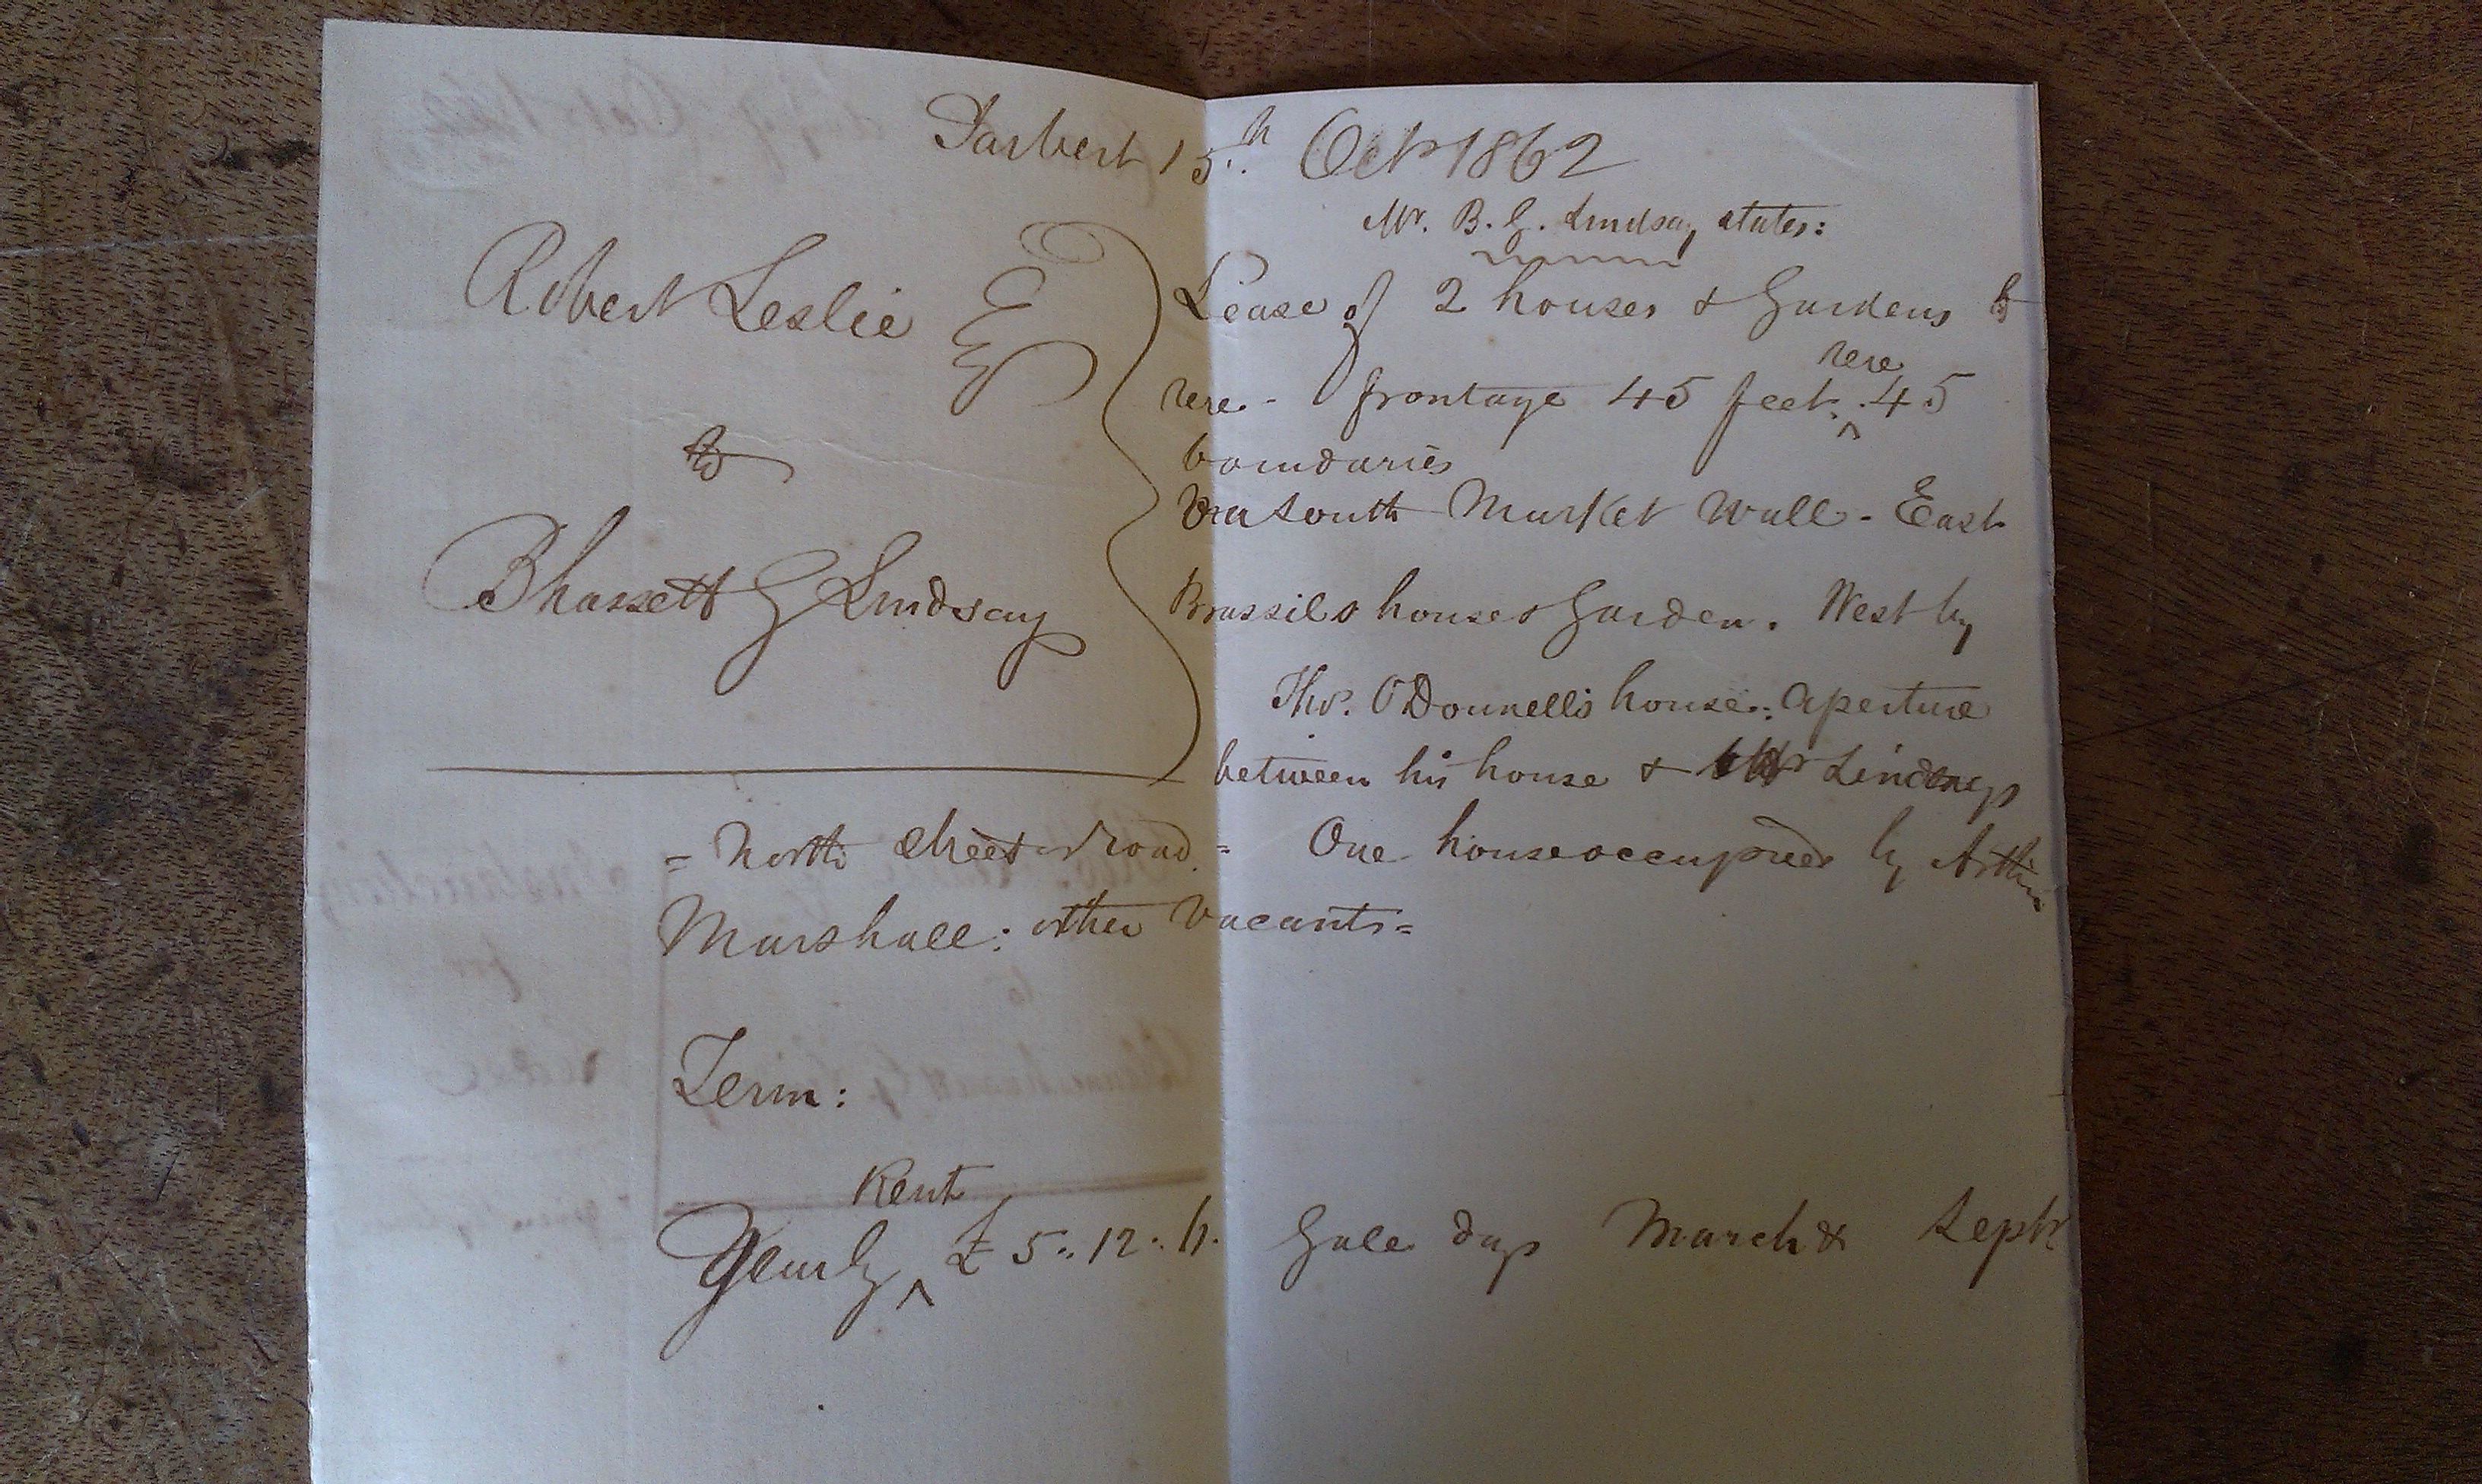 Tarbert 15th Octr 1862
Mr. B. G. Lindsay states:
Robert Leslie Esq
to
Bhassett G Lindsay
Lease of 2 houses & Gardens to
rere - frontage 45 feet. rere 45
boundaries
on South Market Wall - East
Brassils house & Garden. West by
Thos. O'Donnells house: aperture
between his house & Lindsays
= North street or road = One house occupied by Arthur
Marshall: other vacant =
Term:
Yearly Rent £5.. 12.. 6. Gale days March & Septr